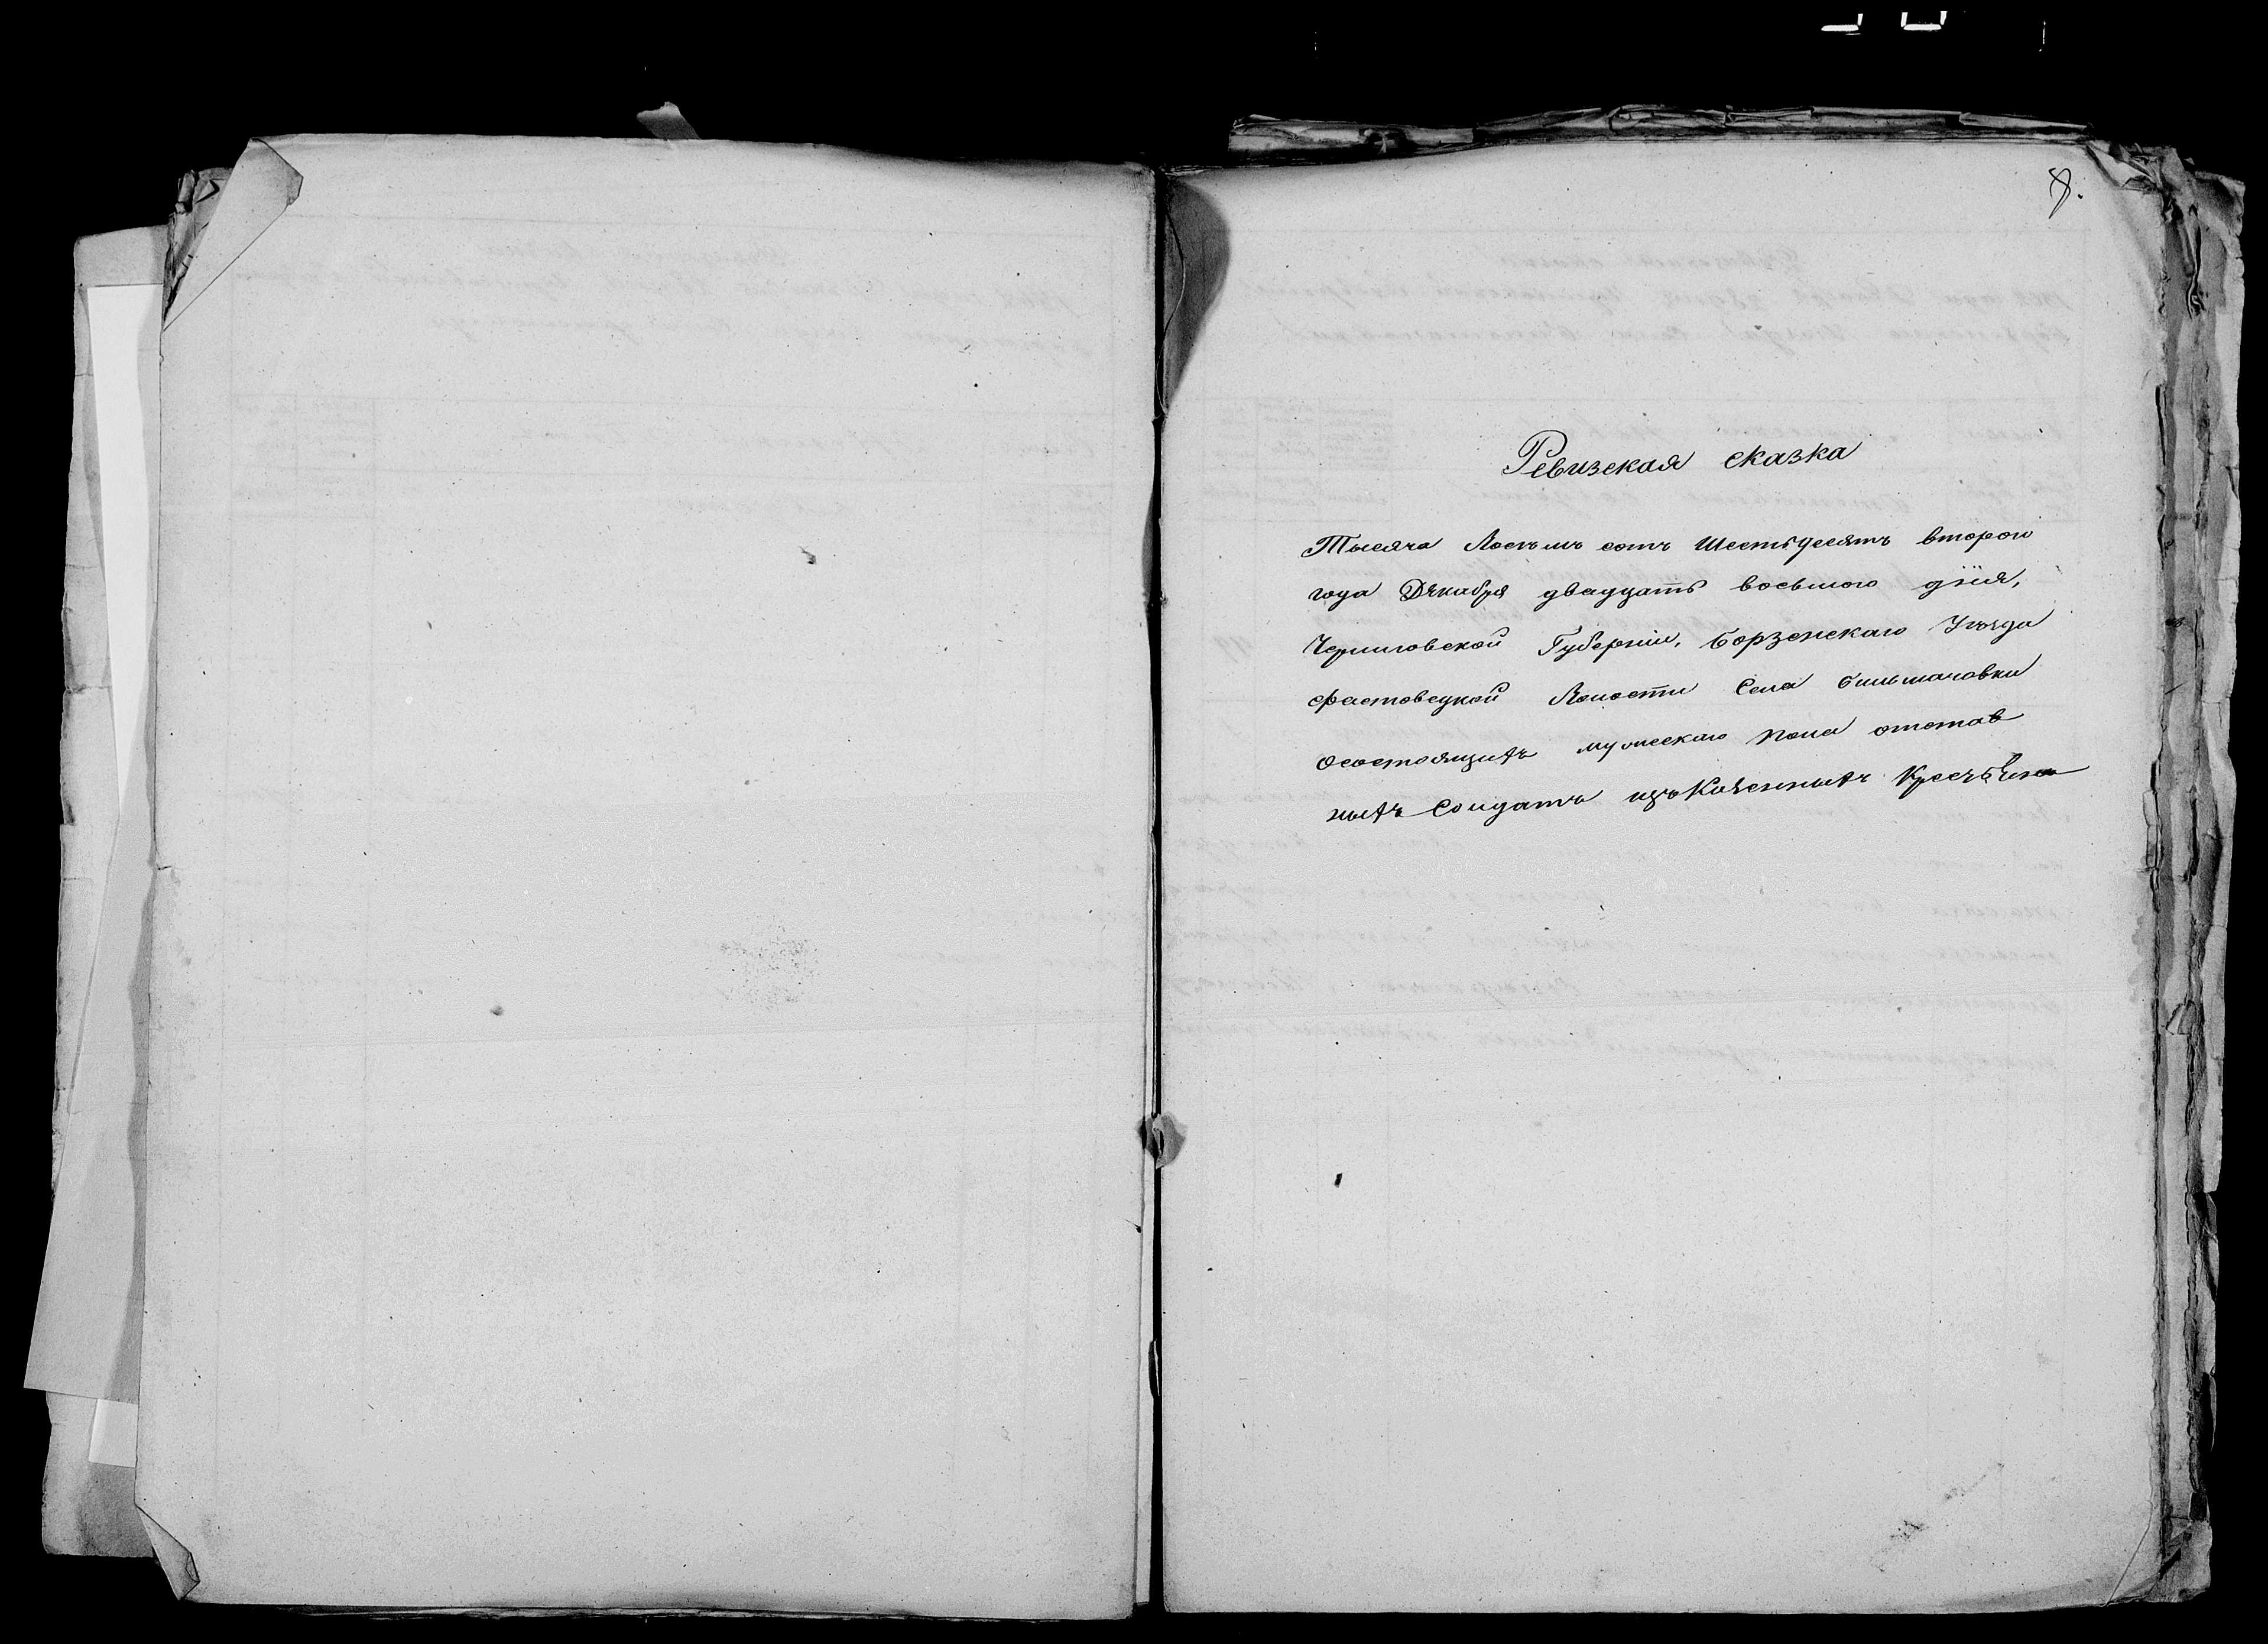 8.
Ревизская сказка
Тысяча Восемъ сотъ Шестьдесятъ второго
года Декабря двадцать восьмого дня,
Черниговской Губернии, Борзенскаго Уѣзда
Фастовецкой Волости Села Бильмачовки
осостоящихъ мужескаго пола отстав
ныхъ Солдатъ изъ Казенныхъ Крестьян